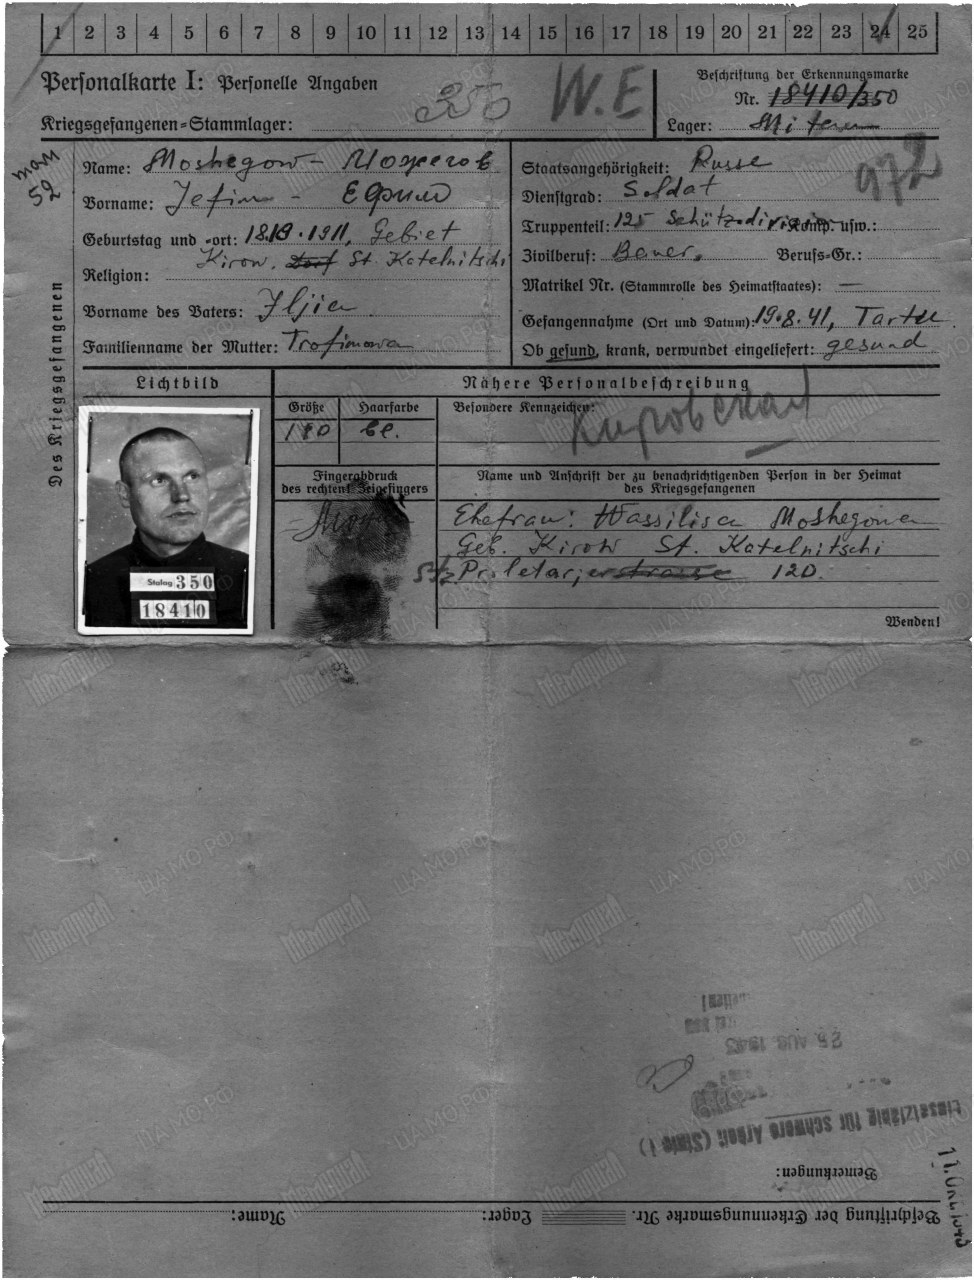 1 2 3 4 5 6 7 8 9 10 11 12 13 14 15 16 17 18 19 20 21 22 23 24 25
Personalkarte I: Personelle Angaben
350
W.E
Kriegsgefangenen-Stammlager:
Beschriftung der Erkennungsmarke
Nr. 18410/350
Lager:
52
972
Des Kriegsgefangenen
Name: Moshegow -Можегов
Vorname: Jefim - Ефим
Geburtstag und -ort: 1911, Gebiet
Kirow, Dorf St. Katelnitschi
Religion:
Vorname des Vaters: Iljia
Familienname der Mutter: Trofimowa
Staatsangehörigkeit: Russe
Dienstgrad: Soldat
Truppenteil: 125 Schützdivision Komp. usw.:
Zivilberuf: Bauer, Berufs-Gr.:
Matrikel Nr. (Stammrolle des Heimatstaates): —
Gefangennahme (Ort und Datum): 19.8.41, Tartu
Ob gesund, krank, verwundet eingeliefert: gesund
Lichtbild
Nähere Personalbeschreibung
Größe
Haarfarbe
Besondere Kennzeichen:
bl.
Кировская
Fingerabdruck
des rechten Zeigefingers
Name und Anschrift der zu benachrichtigenden Person in der Heimat
des Kriegsgefangenen
Ehefrau: Wassilisa Moshegowa
Geb. Kirow St. Katelnitschi
Str. Proletarjerstrasse 120.
Stalag 350
18410
Wenden!
26. AUG. 1943
Einsatzfähig für schwere Arbeit (Stufe I)
Bemerkungen:
Name:
Lager:
Beschriftung der Erkennungsmarke Nr.
Мемориал
ЦА МО РФ